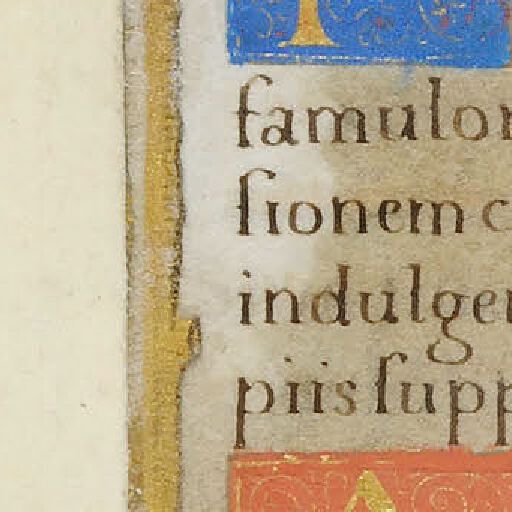 famulor
sionem c
indulgen
piis supp